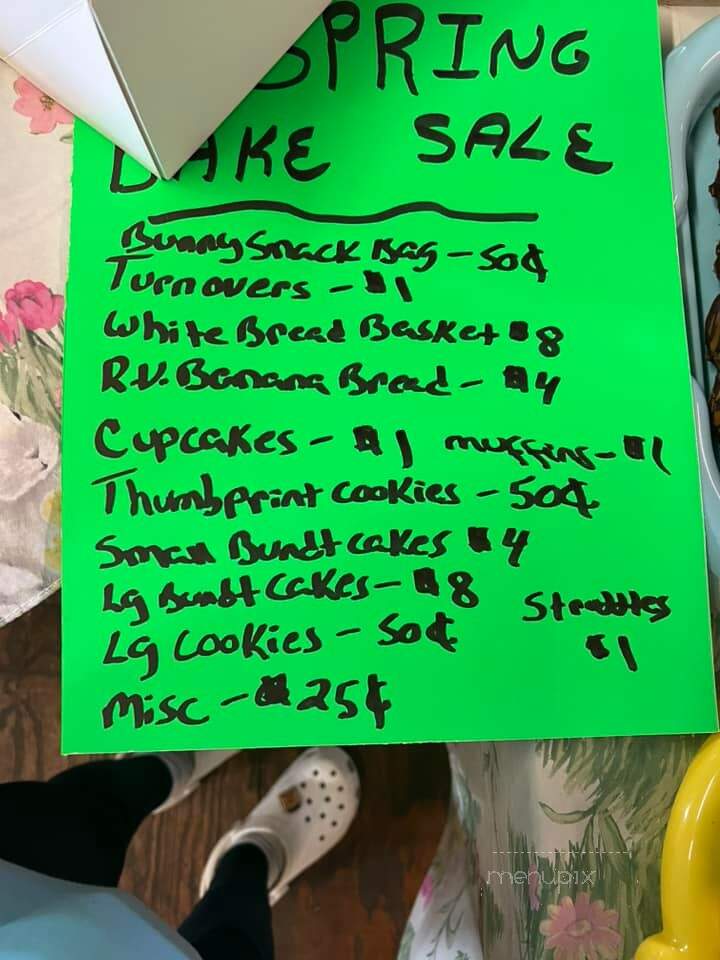 SPRING
BAKE SALE
Bunny Snack Bag - 50¢
Turnovers - $1
White Bread Basket $8
R.V. Banana Bread - $4
Cupcakes - $1 muffins - $1
Thumbprint cookies - 50¢
Small Bundt cakes $4
Lg Bundt Cakes - $8
Lg Cookies - 50¢
$1
Misc - 25¢
menupix